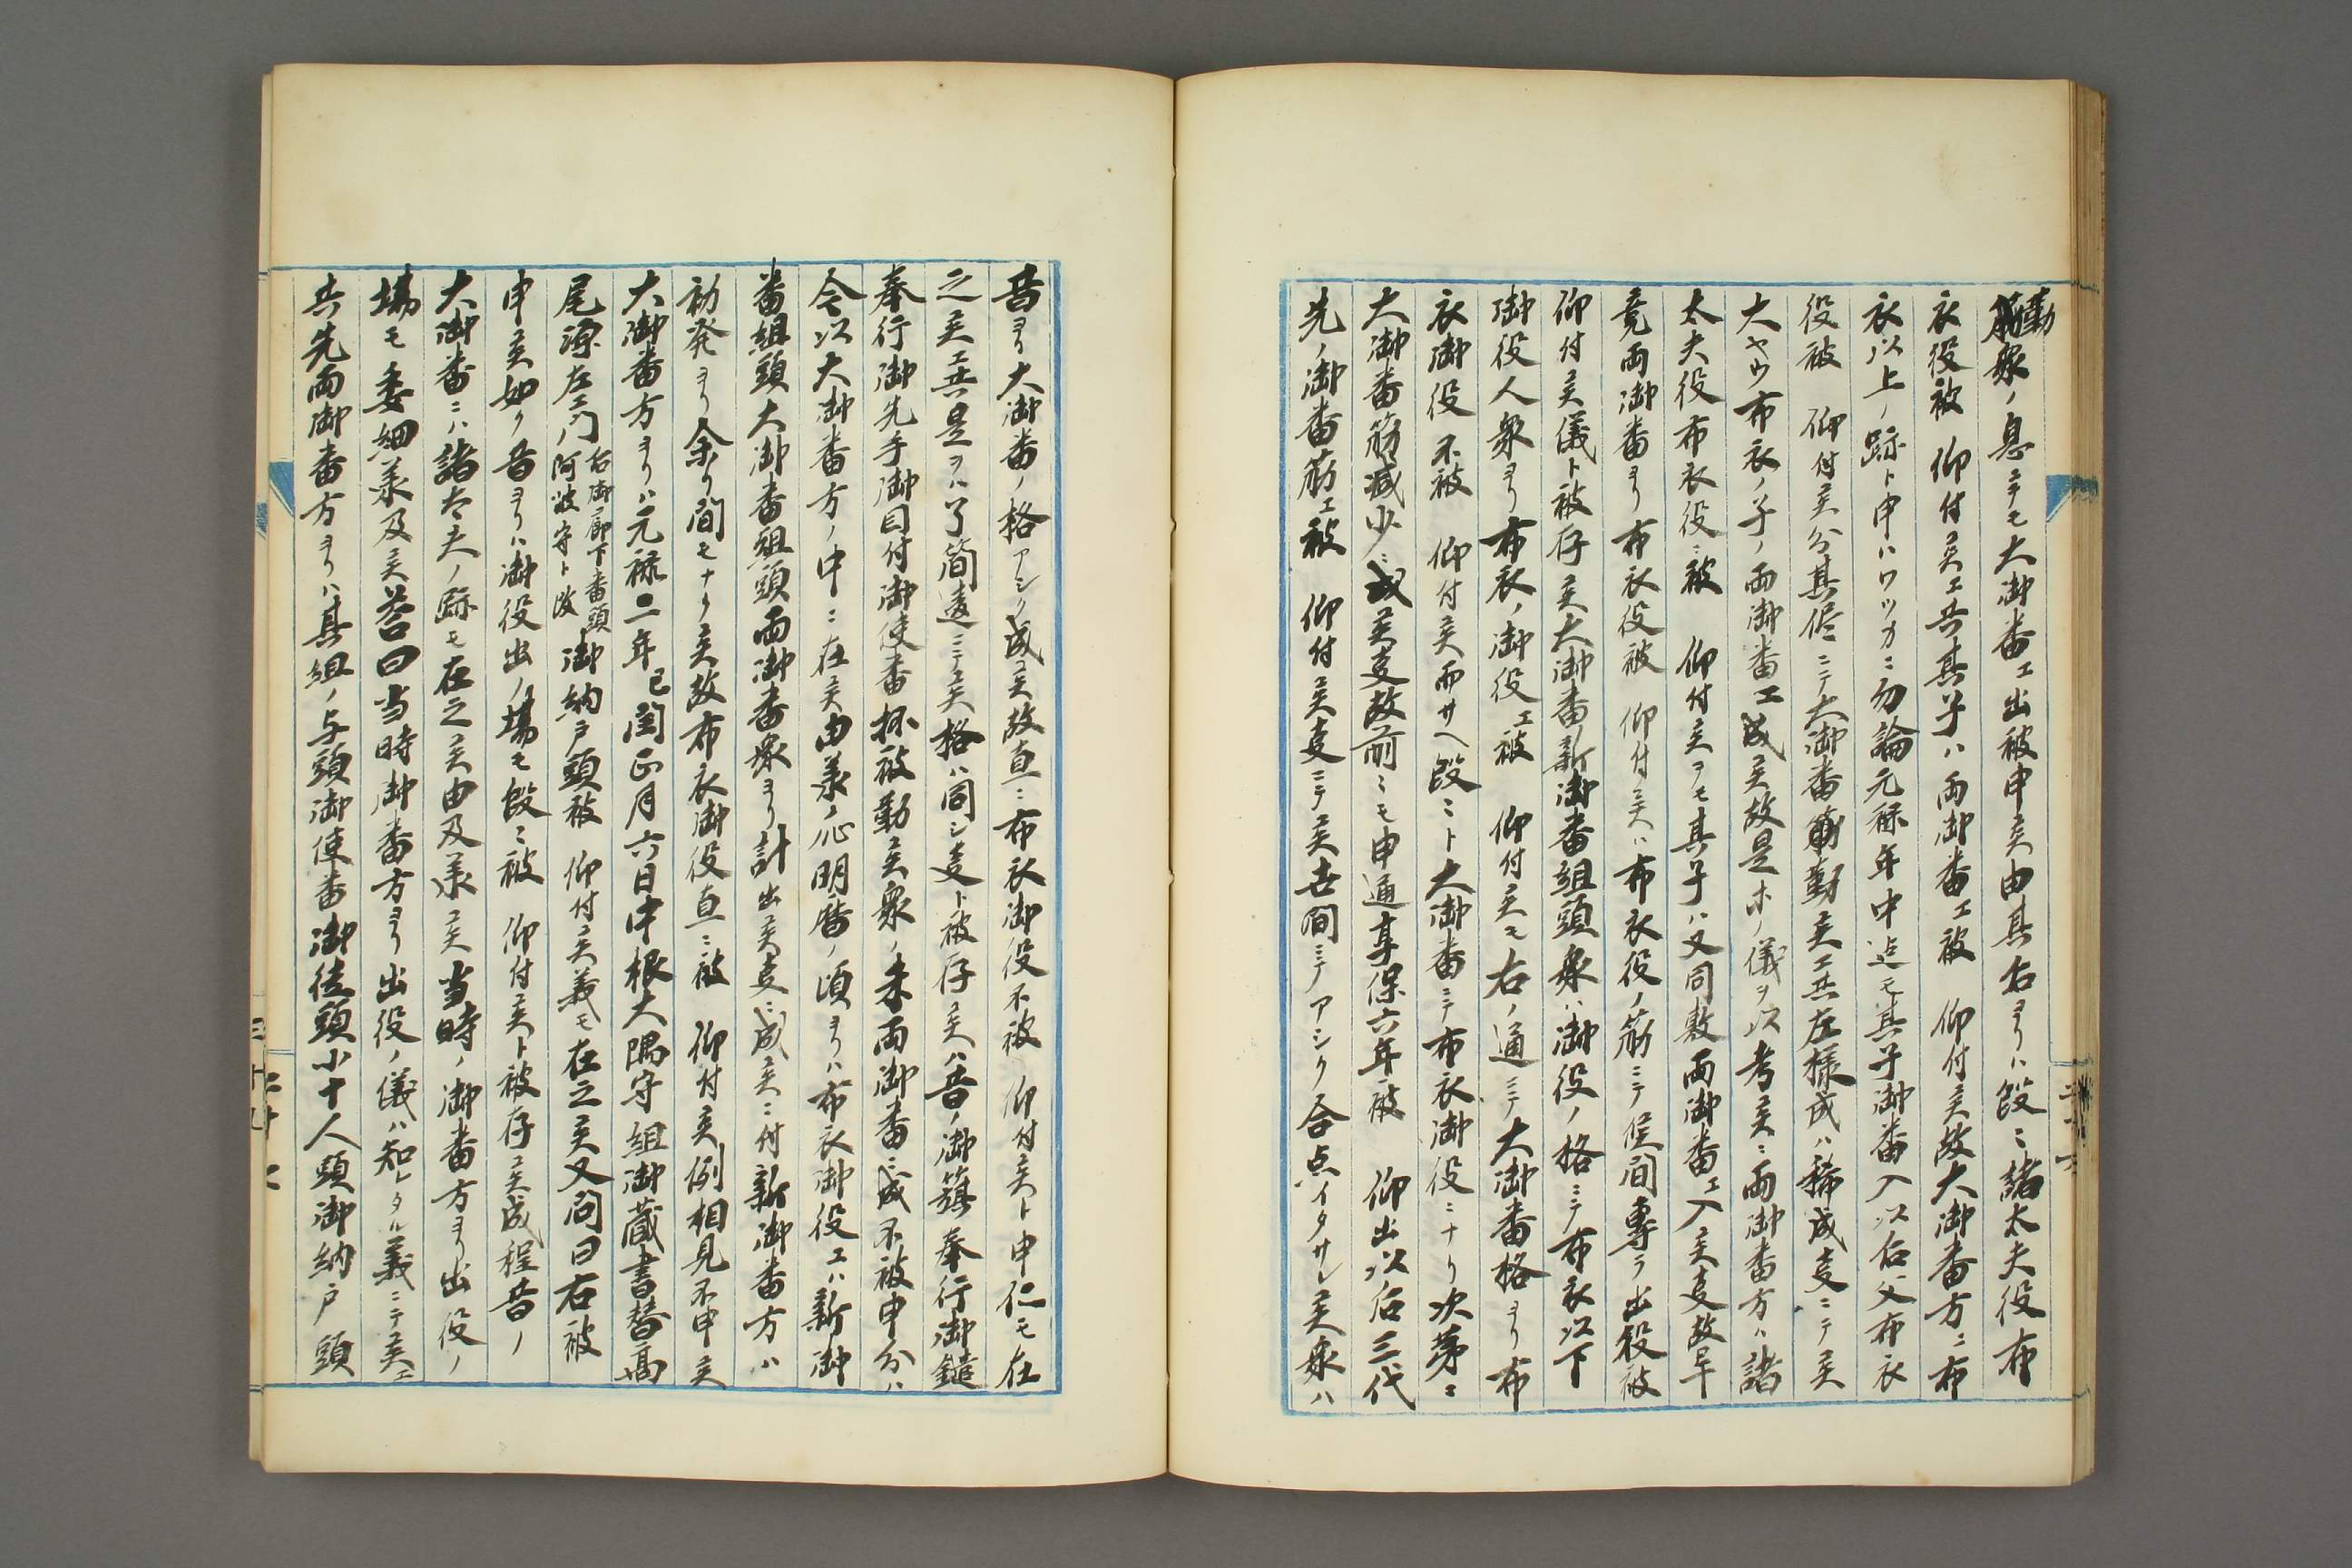 勤
筋衆ノ息ニテモ大御番エ出被申候由其右ヨリハ段ニ諸太夫役布
衣役被　仰付候エ共其子ハ両御番エ被　仰付候故大御番方ニ布
衣以上ノ跡ト申ハワツカニ勿論元禄年中迄モ其子御番入以后父布衣
役被　仰付候分其侭ニテ大御番勤候エ共左様成ハ稀成事ニテ候
大ヤウ布衣ノ子ノ両御番エ成候故是ホノ儀ヲ以考候ニ両御番方ハ諸
太夫役布衣役ニ被　仰付候ヲモ其子ハ又同敷両御番エ入候事故畢
竟両御番ヨリ布衣役被　仰付候ハ布衣役ノ筋ニテ候間専ラ出役被
仰付候儀ト被存候大御番新御番組頭衆ハ御役ノ格ニテ布衣以下
御役人衆ヨリ布衣ノ御役エ被　仰付候モ右ノ通ニテ大御番格ヨリ布
衣御役不被　仰付候而サヘ段ミト大御番ニテ布衣御役ニナリ次第ニ
大御番筋減少ニ成候事故前ニモ申通享保六年被　仰出以后三代
先ノ御番筋エ被　仰付候事ニテ候世間ニテアシク合点イタサレ候衆ハ
昔ヨリ大御番ノ格アシク成候故直ニ布衣御役不被　仰付候ト申仁モ在
之候エ共是ヲハ了簡違ニテ候格ハ同シ事ト被存候ハ昔ノ御籏奉行御鑓
奉行御先手御目付御使番抔被勤候衆ノ末両御番ニ成不被申分ハ
今以大御番方ノ中ニ在候由義ノ心明暦ノ頃ヨリハ布衣御役エハ新御
番組頭大御番組頭両御番衆ヨリ計出候事ニ成候ニ付新御番方ハ
初発ヨリ余リ間モナク候故布衣御役直ニ被　仰付候例相見不申候
大御番方ヨリハ元禄二年巳閏正月六日中根大隅守組御蔵書替高
尾源左エ門右御廊下番頭
ノ阿波守ト改御納戸頭被　仰付候義モ在之候又問曰右被
申候如ク昔ヨリハ御役出ノ場モ段ニ被　仰付候ト被存候成程昔ノ
大御番ニハ諸太夫ノ跡モ在之候由及承候当時ノ御番方ヨリ出役ノ
場モ委細承及候答曰当時御番方ヨリ出役ノ儀ハ知レタル義ニテ候エ
共先両御番方ヨリハ其組ノ与頭御使番御徒頭小十人頭御納戸頭